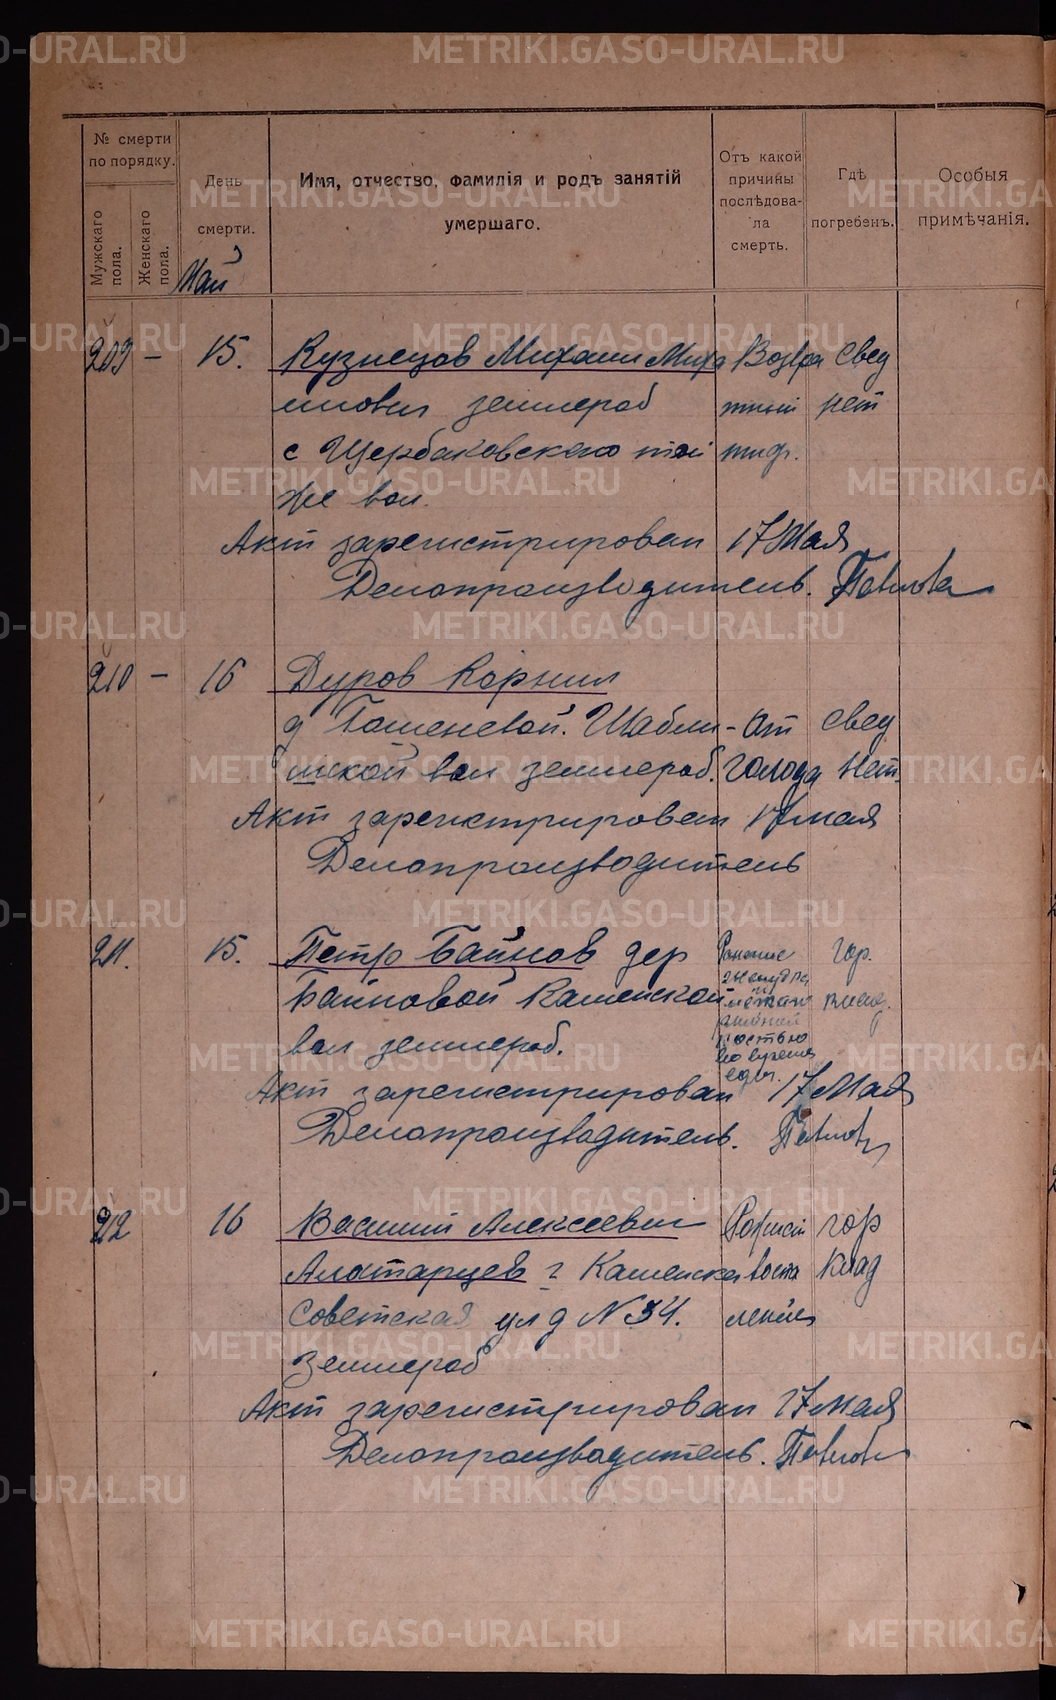 № смерти по порядку.
Мужскаго пола.
Женскаго пола.
День смерти.
Имя, отчество, фамилія и родъ занятій умершаго.
Отъ какой причины послѣдовала смерть.
Гдѣ погребенъ.
Особыя примѣчанія.
Май
209 — 15. Кузнецов Михаил Миха Возвра Свед
илович землероб тный нет
с Щербаковского той тиф.
же вол.
Акт зарегистрирован 17 Мая
Делопроизводитель. Павлова
210 — 16 Дуров Корнил
д Гашеневой. Шабли- От свед
шской вол землероб. голода Нет.
Акт зарегистрирован 17 мая
Делопроизводитель
211. 15. Петр Байнов дер гор.
Байновой Каменской
вол землероб. во время
еды.
Акт зарегистрирован 17 Мая
Делопроизводитель. Павлов
212 16 Василий Алексеевич гор
Алотарцев г Каменска воспа Клад
Советская ул д N 34. ление
Землероб
Акт зарегистрирован 17 мая
Делопроизводитель. Павлов
METRIKI.GASO-URAL.RU